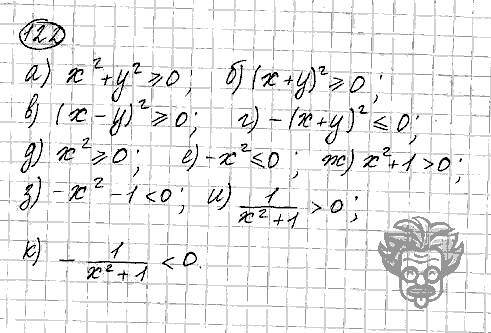 122
а) x² + y² ≥ 0; б) (x + y)² ≥ 0;
в) (x − y)² ≥ 0; г) −(x + y)² ≤ 0;
д) x² ≥ 0; е) −x² ≤ 0; ж) x² + 1 > 0;
з) −x² − 1 < 0; и) 1/(x² + 1) > 0;
к) − 1/(x² + 1) < 0.